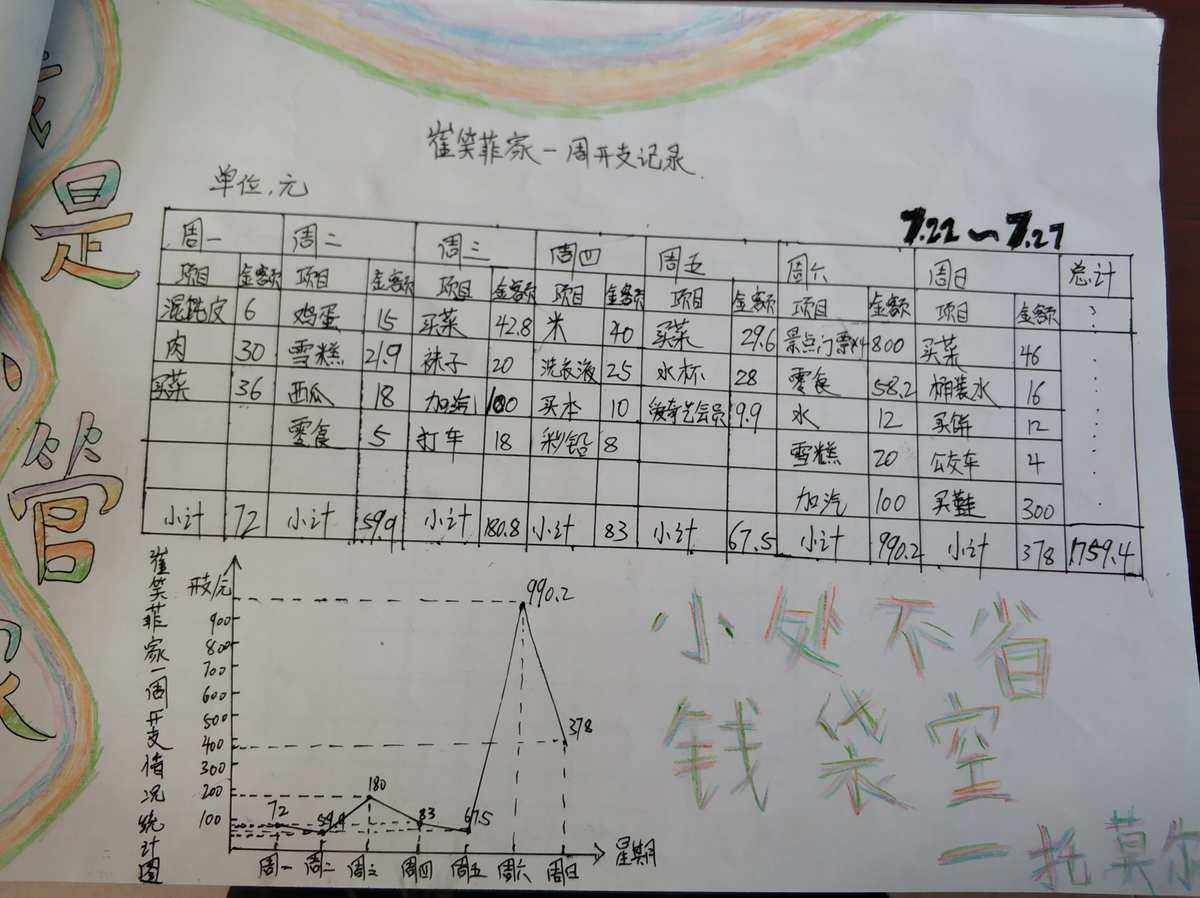 是
小
管
家
崔笑菲家一周开支记录.
单位:元
7.22~7.27
周一 周二 周三 周四 周五 周六 周日 总计
项目 金额 项目 金额 项目 金额 项目 金额 项目 金额 项目 金额 项目 金额
混饨皮 6 鸡蛋 15 买菜 42.8 米 40 买菜 29.6 景点门票×4 800 买菜 46
肉 30 雪糕 21.9 袜子 20 洗衣液 25 水杯 28 零食 58.2 桶装水 16
买菜 36 西瓜 18 加汽 100 买本 10 爱奇艺会员 9.9 水 12 买饼 12
零食 5 打车 18 彩铅 8 雪糕 20 公交车 4
加汽 100 买鞋 300
小计 72 小计 59.9 小计 180.8 小计 83 小计 67.5 小计 990.2 小计 378 1759.4
崔笑菲家一周开支情况统计图
开支/元
900
800
700
600
500
400
300
200
100
72 59.9 180 83 67.5 990.2 378
周一 周二 周三 周四 周五 周六 周日
星期
小处不省
钱袋空
—托莫尔